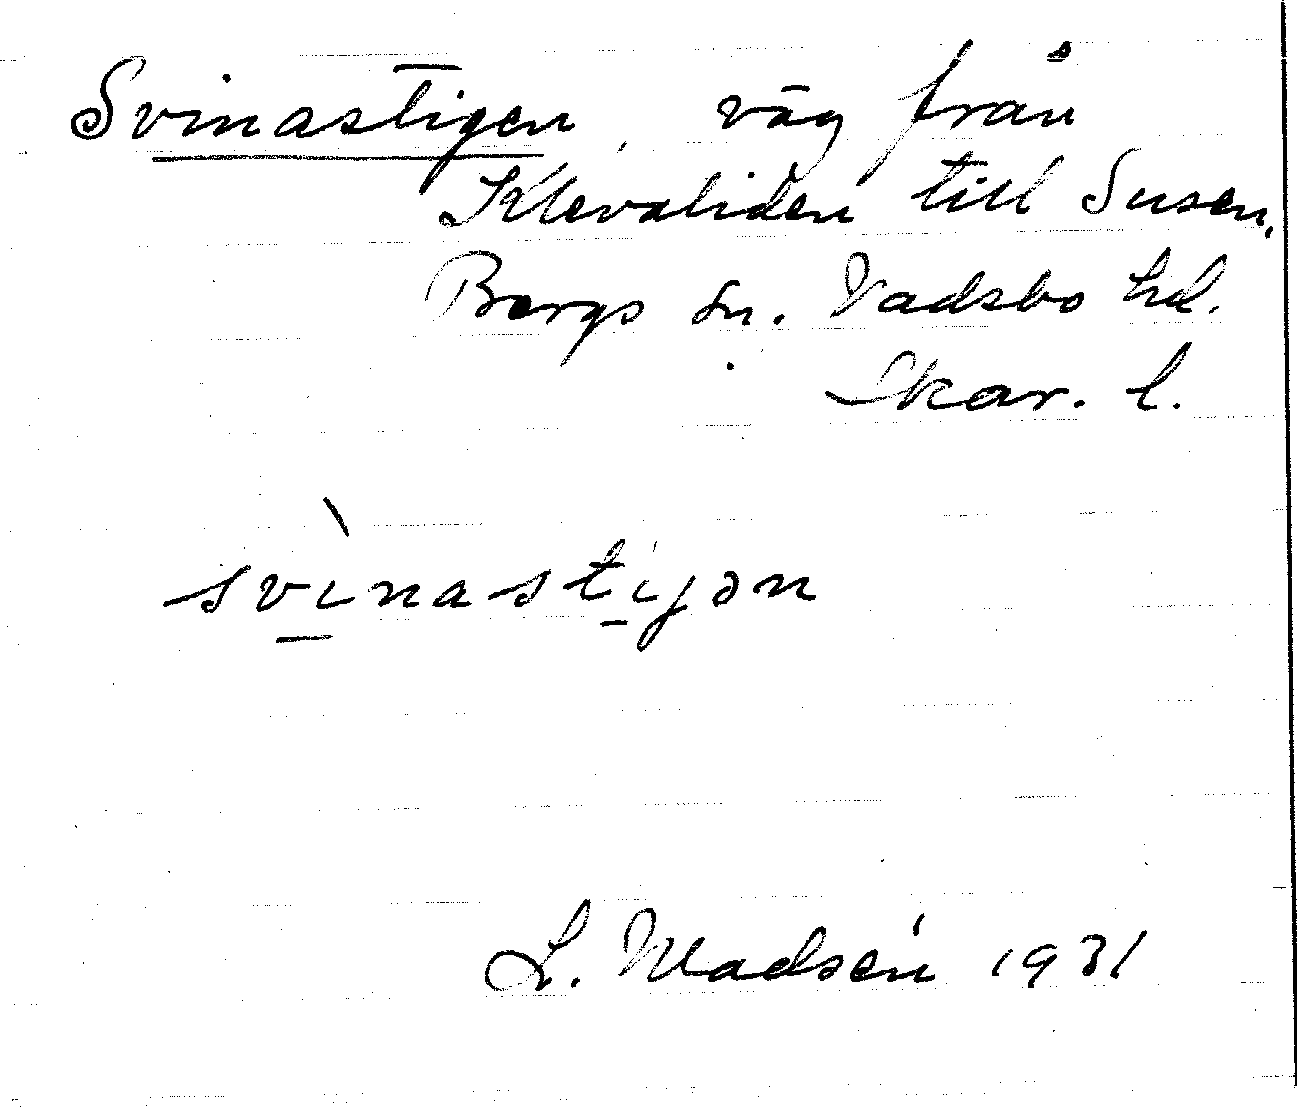 Svinastigen, väg från
Klevaliden till Susen,
Bergs sn. Vadsbo hd.
Skar. l.
svìnastijən
L. Madsén 1931